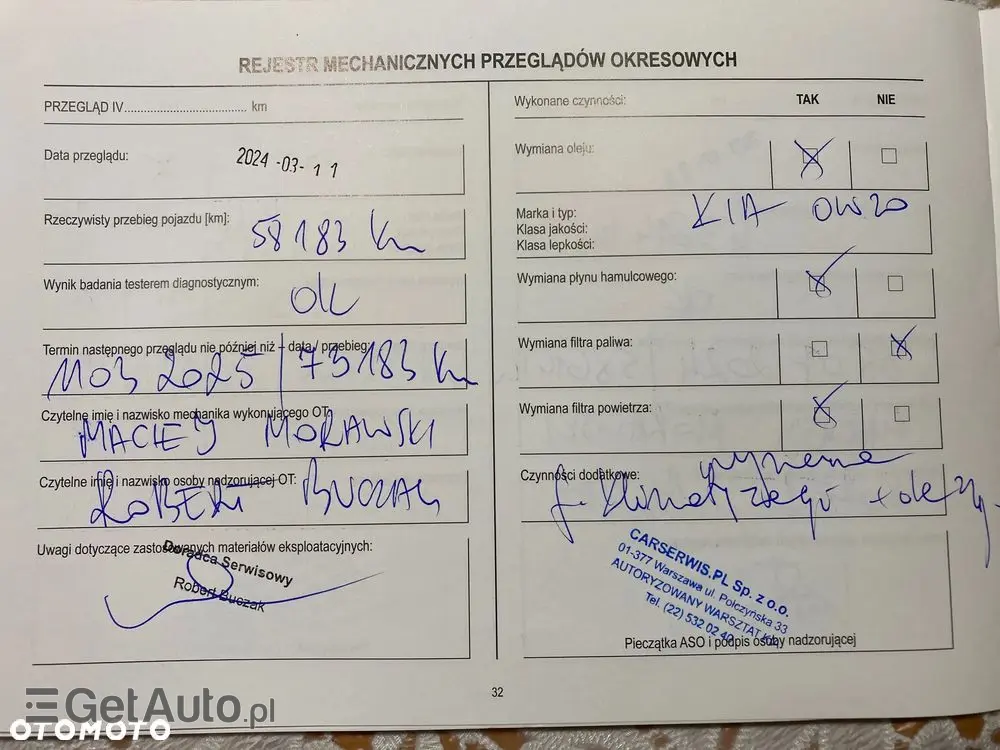 REJESTR MECHANICZNYCH PRZEGLĄDÓW OKRESOWYCH
PRZEGLĄD IV.................................... km
Data przeglądu: 2024 -03- 11
Rzeczywisty przebieg pojazdu [km]: 58183 km
Wynik badania testerem diagnostycznym: OK
Termin następnego przeglądu nie później niż – data / przebieg:
1103 2025 / 73183 km
Czytelne imię i nazwisko mechanika wykonującego OT:
MACIEJ MORAWSKI
Czytelne imię i nazwisko osoby nadzorującej OT:
ROBERT BUCZAK
Uwagi dotyczące zastosowanych materiałów eksploatacyjnych:
Doradca Serwisowy
Robert Buczak
Wykonane czynności: TAK NIE
Wymiana oleju:
Marka i typ: KIA 0W20
Klasa jakości:
Klasa lepkości:
Wymiana płynu hamulcowego:
Wymiana filtra paliwa:
Wymiana filtra powietrza:
Czynności dodatkowe: wymiana
f. klimatyzacji
CARSERWIS.PL Sp. z o.o.
01-377 Warszawa ul. Połczyńska 33
AUTORYZOWANY WARSZTAT KIA
Tel. (22) 532 02 40
Pieczątka ASO i podpis osoby nadzorującej
32
GetAuto.pl
OTOMOTO